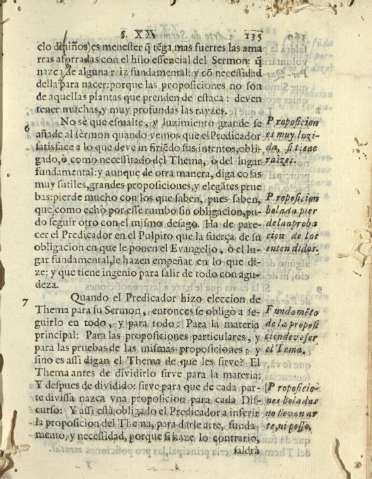 §. XX 135
clo de niños) es menester q̃ tẽga mas fuertes las ama
rras aforradas con el hilo essencial del Sermon: q̃
nazca de alguna raiz fundamental: y cõ necessidad
della para nacer: porque las proposiciones no son
de aquellas plantas que prenden de estaca: deven
tener muchas, y muy profundas las rayzes.
6 No sè que esmalte, y luzimiento grande se
añade al sermon quando vemos que el Predicador
satisface a lo que deve in fixẽdo sus intentos, obli-
gado, ò como necessitado del Thema, ò del lugar
fundamental: y aunque de otra manera, diga cosas
muy sutiles, grandes proposiciones, y elegãtes prue
bas: pierde mucho con los que saben, pues saben,
que como echò por esse rumbo sin obligacion, pu-
do seguir otro con el mismo desago. Ha de pare-
cer el Predicador en el Pulpito que la fuerça de su
obligacion en que le ponen el Evangelio, ò el lu-
gar fundamental, le hazen empeñar en lo que di-
ze; y que tiene ingenio para salir de todo con agu-
deza.
7 Quando el Predicador hizo eleccion de
Thema para su Sermon, entonces se obligò a se-
guirlo en todo, y para todo: Para la materia
principal: Para las proposiciones particulares, y
para las pruebas de las mismas proposiciones: y
sino es assi digan el Thema de que les sirve? El
Thema antes de dividirlo sirve para la materia:
Y despues de dividido: sirve para que de cada par-
te divissa nazca vna proposicion para cada Dis-
curso: Y assi està obligado el Predicador a inferir
la proposicion del Thema, para darle arte, funda-
mento, y necessidad, porque si haze lo contrario,
saldrà
Proposicion
es muy luzi-
da, si tiene
raizes.
Proposicion
bolada pier
de la aproba
cion de los
entendidos.
Fundamẽto
de la proposi
ciõ deve ser
el Tema.
Proposicio-
nes boladas
no llevan ar
te, ni posso.